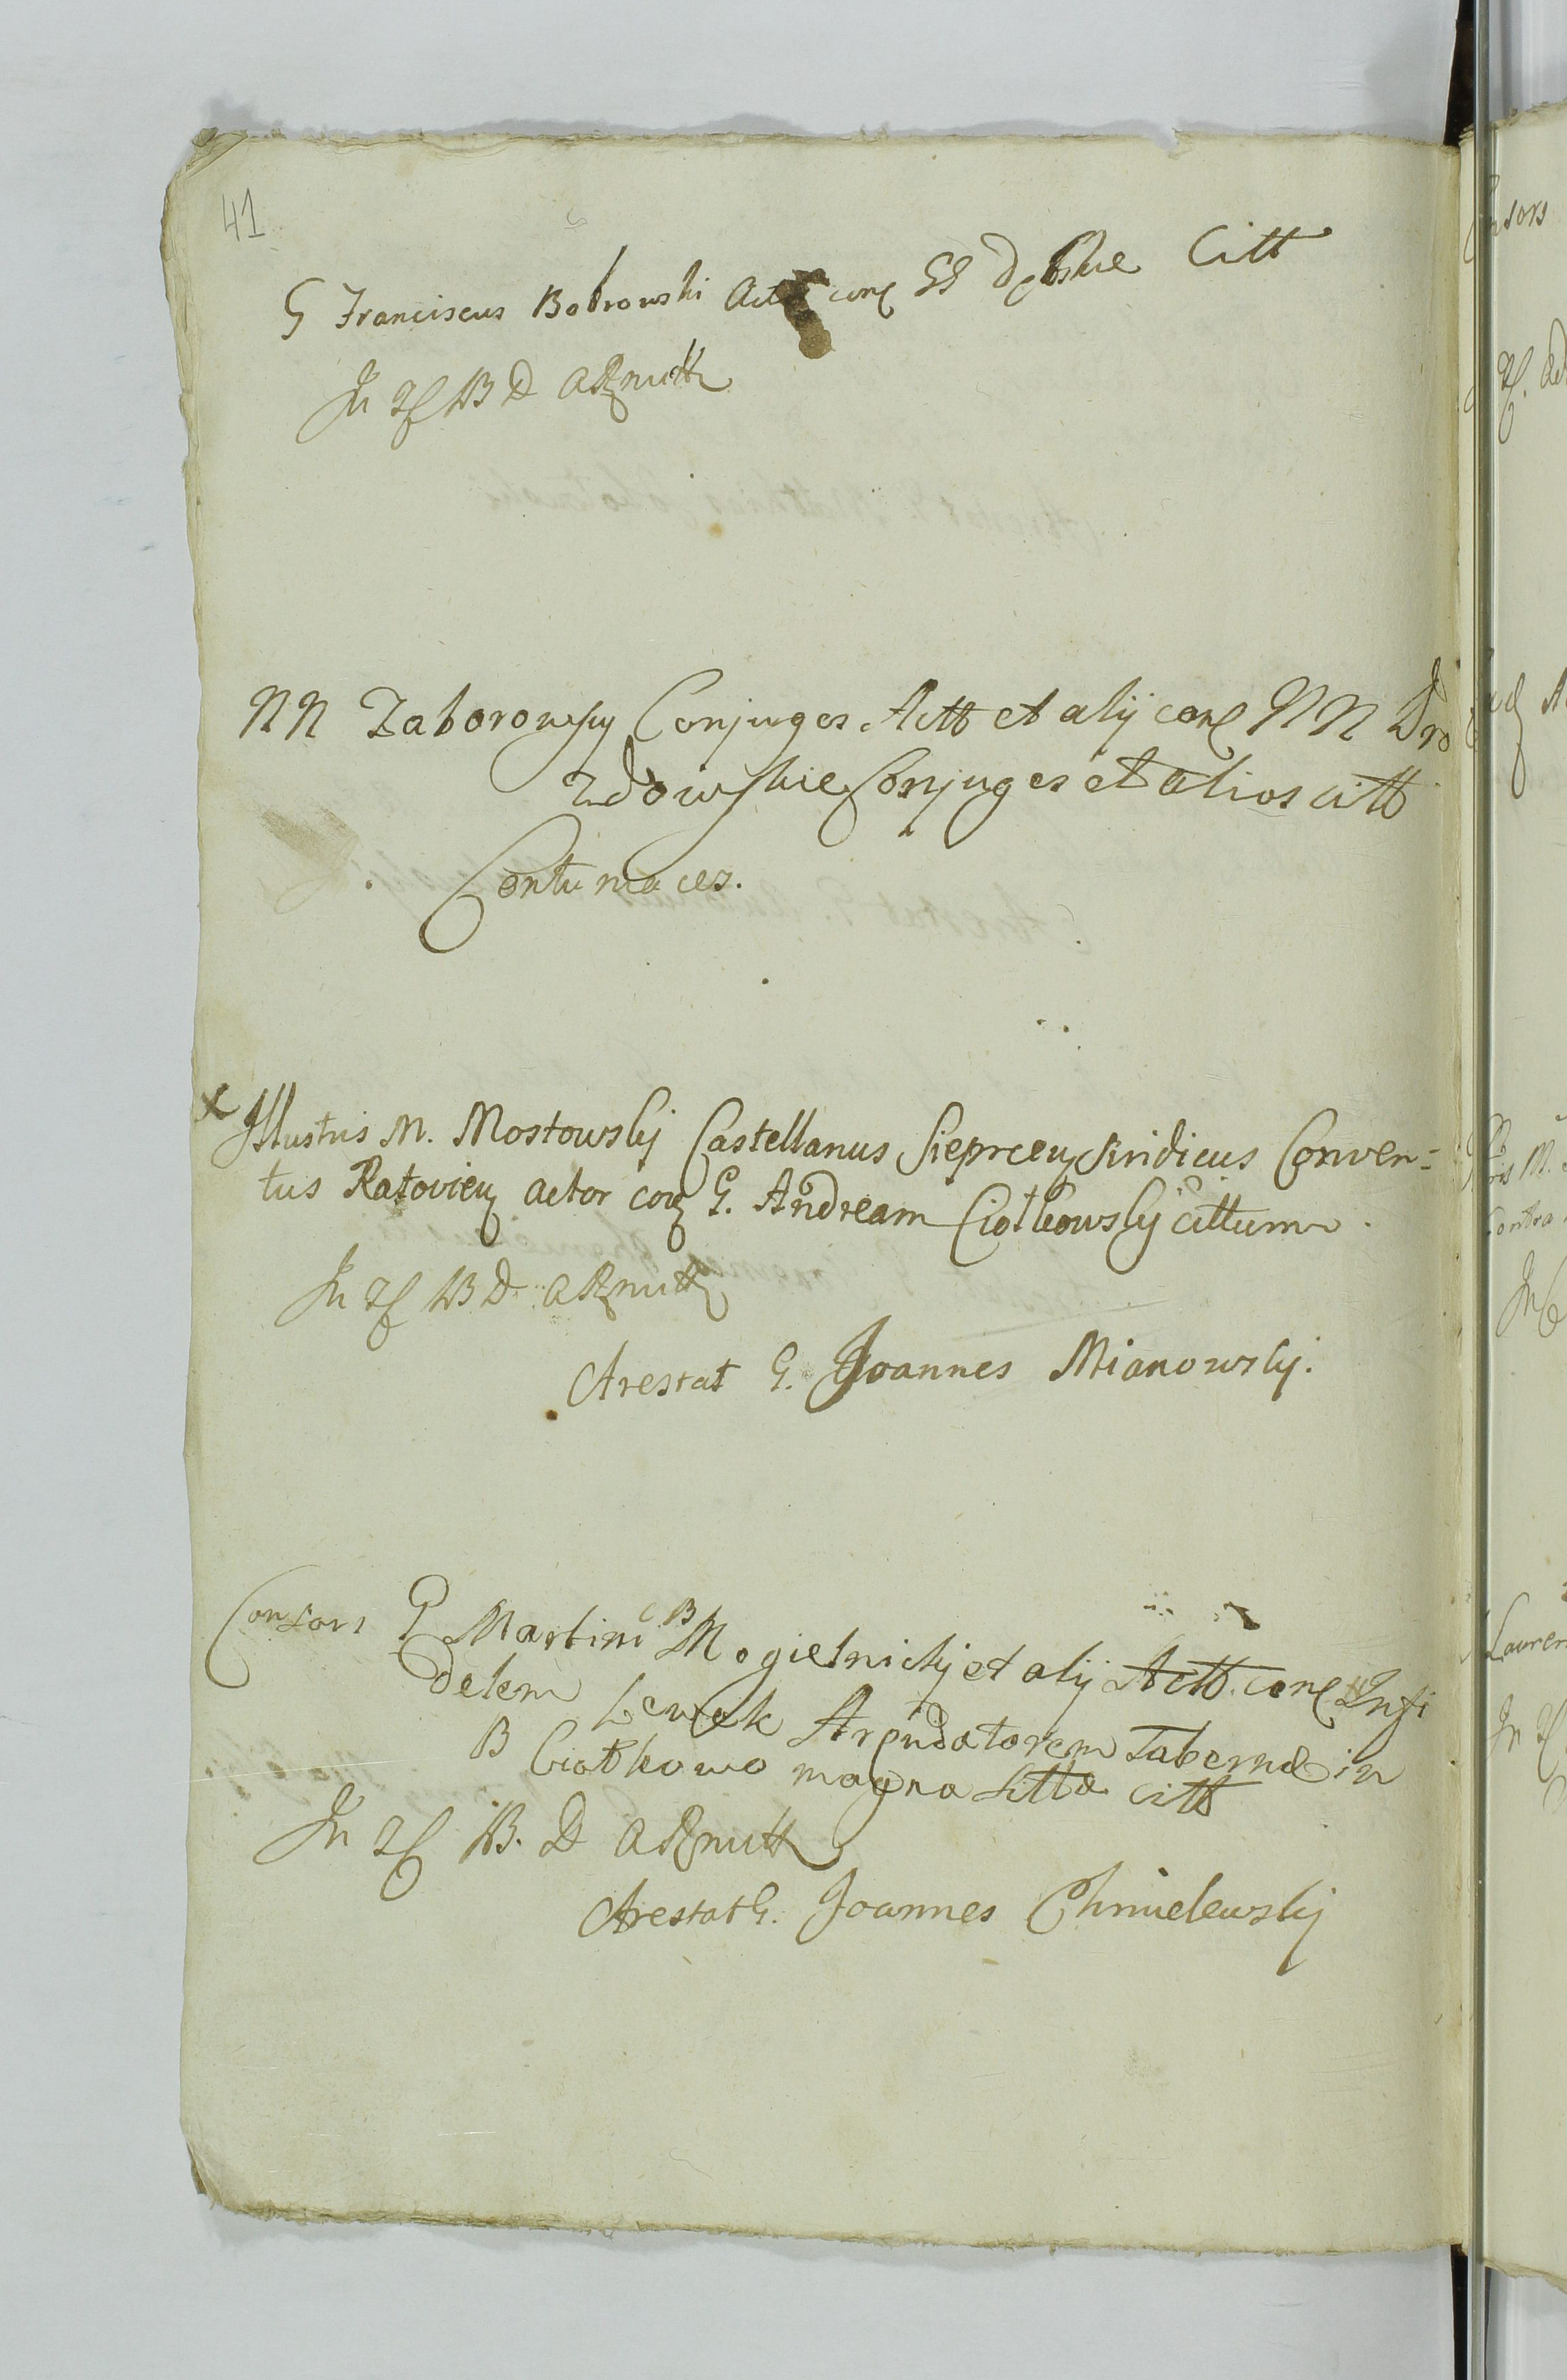 41
G Franciscus Bobrowski Act con GG Dębskie Citt
In Rf B D ARmitt
NN Zaborowscy Conjuges Actt et alij con NN Dro
zdowskie Conjuges et alios citt
Contumaces.
x Illustris M. Mostowskj Castellanus Sieprcen Siridicus Conven=
tus Ratovien actor con G. Andream Ciotkowskj cittum
In Rf B D ARmitt
Arestat G. Joannes Mianowskj.
Consors G Martini B Mogielnickj et alij Actt con Infi
delem Lewek Arendatorem Tabernæ in
B Ciotkowo magna sittæ citt
In Rf B. D ARmitt
Arestat G. Joannes Chmielewskj